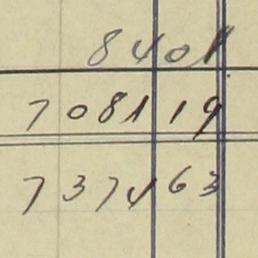 8401
708119
737463